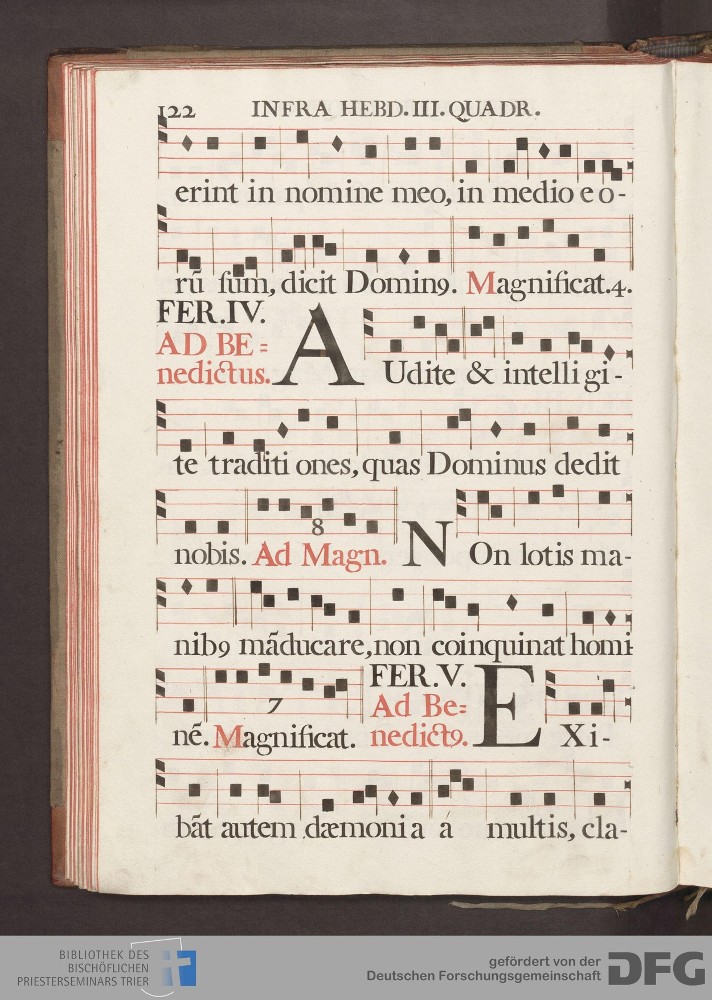 122 INFRA HEBD. III. QUADR.
erint in nomine meo, in medio eo-
rū sum, dicit Domin9. Magnificat. 4.
FER. IV.
AD BE=
nedictus. AUdite & intelligi-
te traditiones, quas Dominus dedit
8
nobis. Ad Magn. NOn lotis ma-
nib9 mãducare, non coinquinat homi-
7
nẽ. Magnificat. FER. V.
Ad Be=
nedict9. EXi-
bãt autem dæmonia á multis, cla-
BIBLIOTHEK DES
BISCHÖFLICHEN
PRIESTERSEMINARS TRIER
gefördert von der
Deutschen Forschungsgemeinschaft DFG